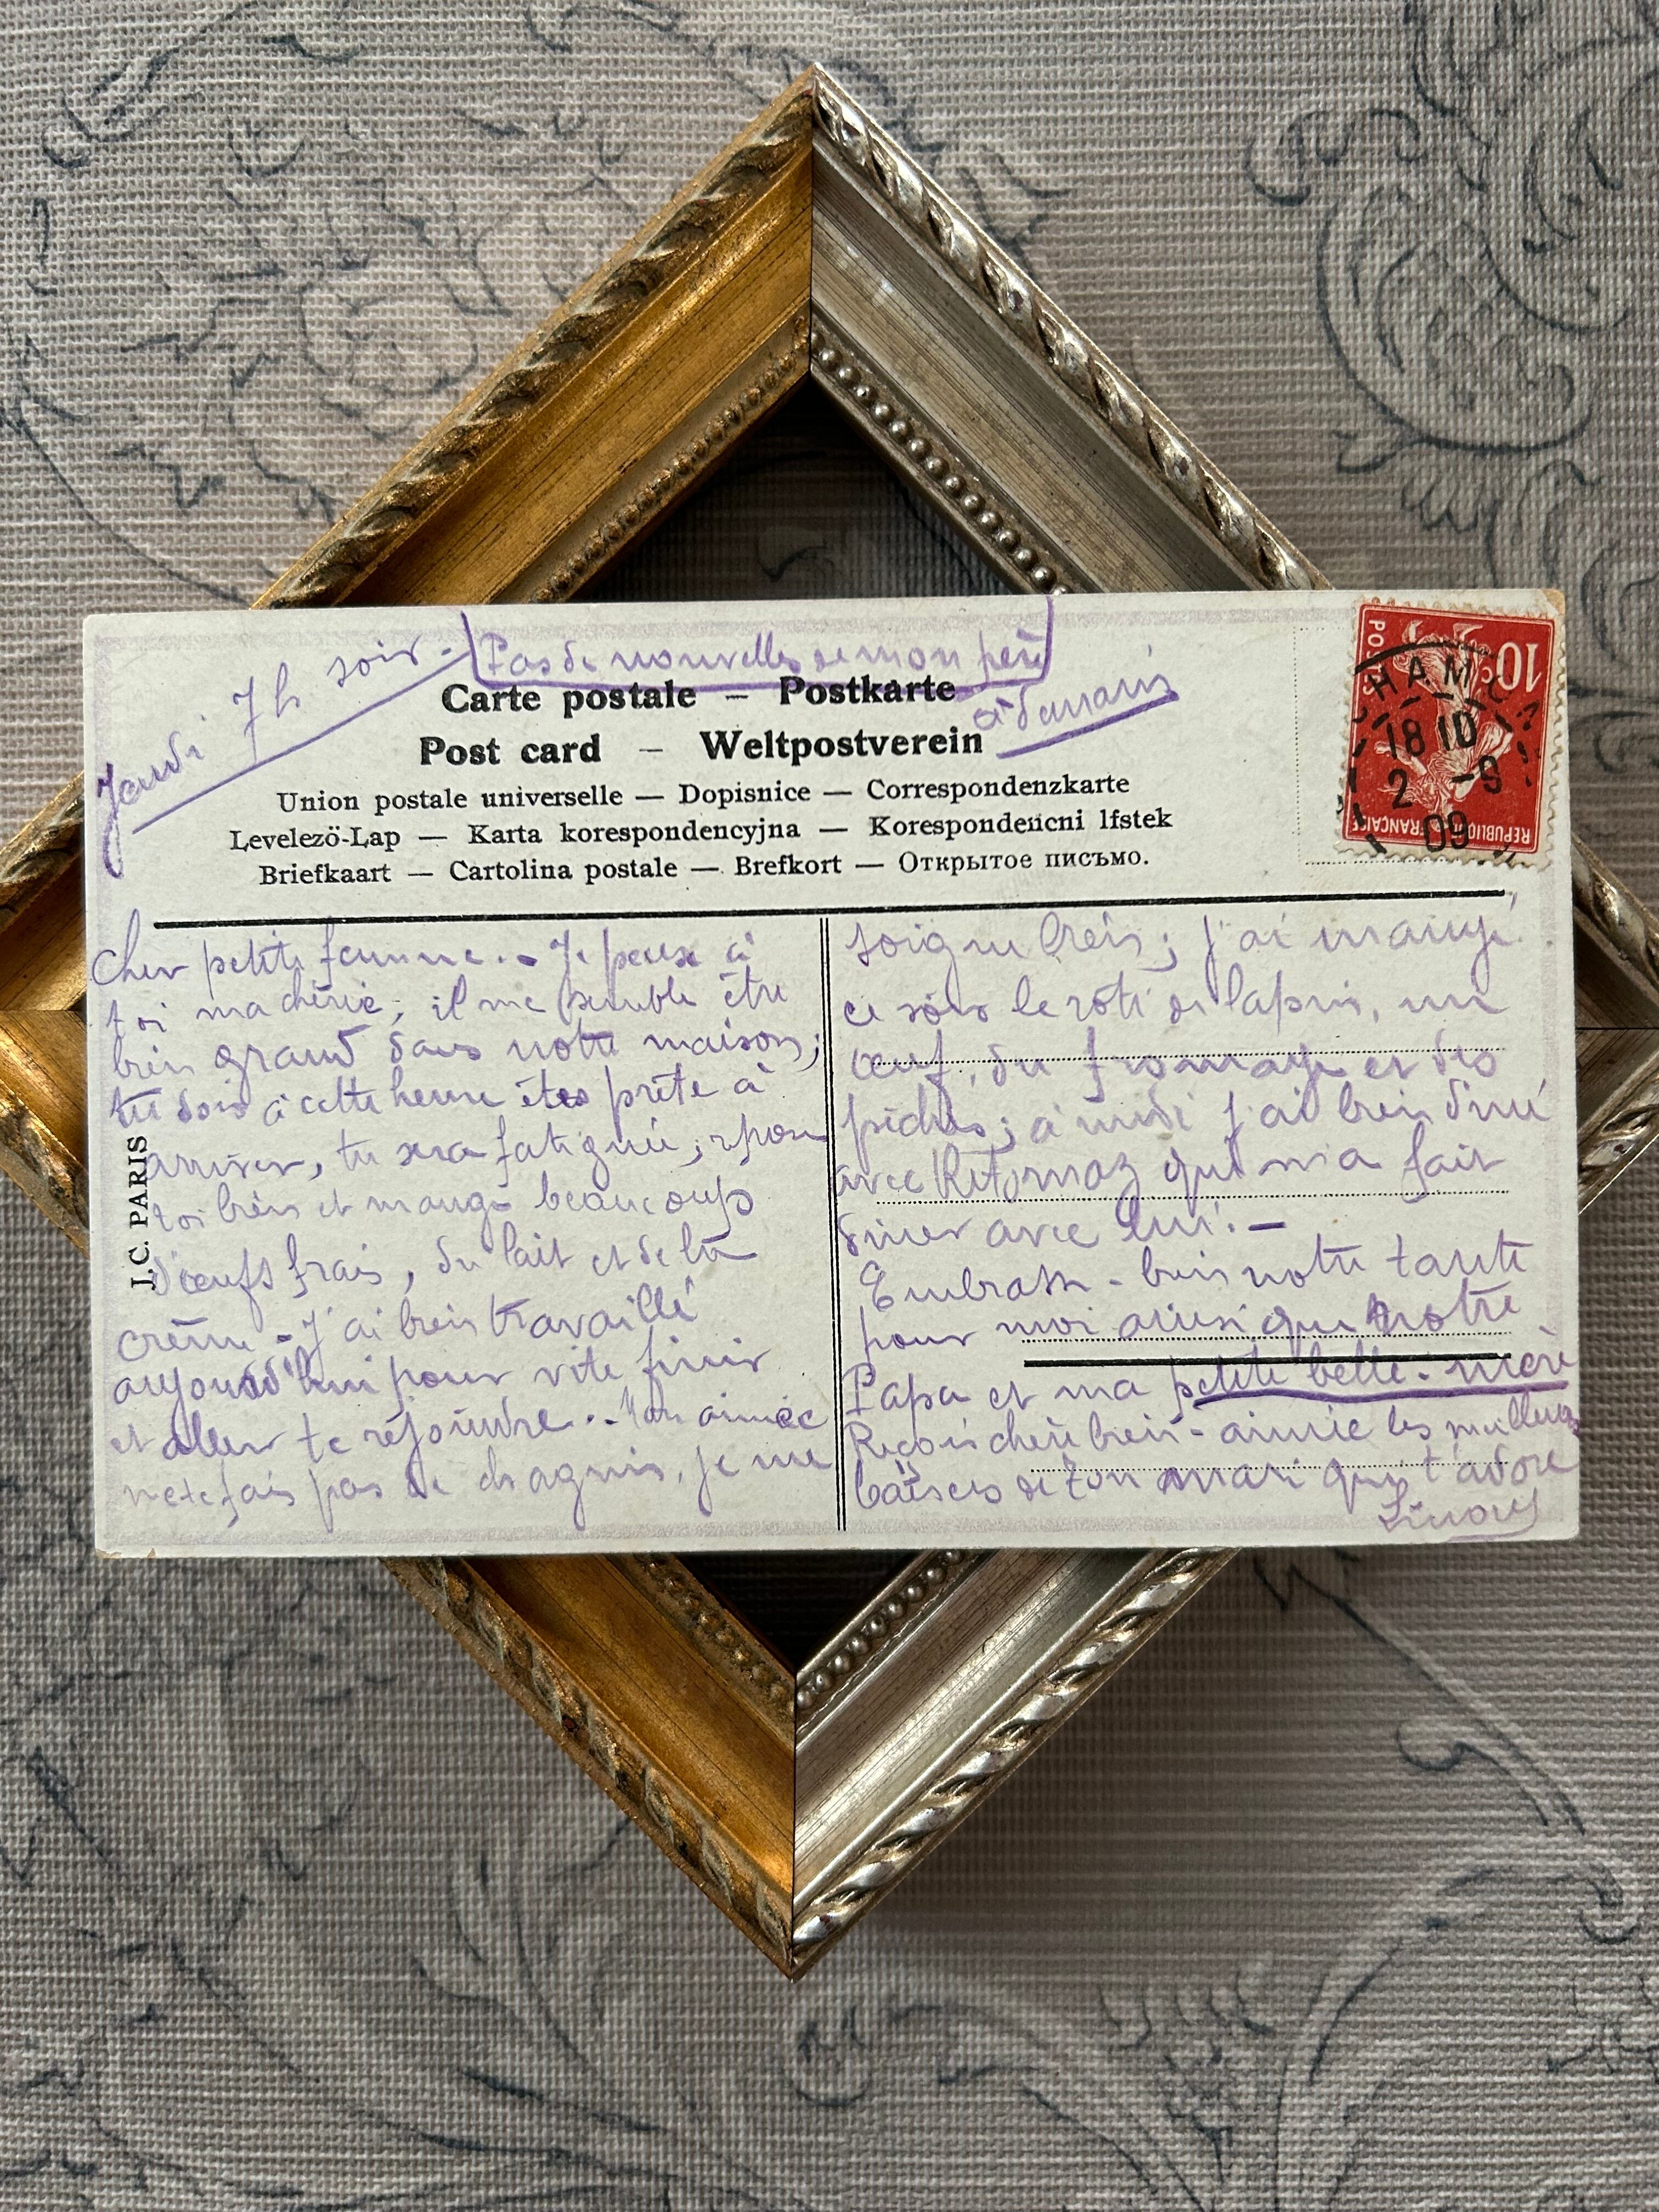 Jeudi 7h soir. -
Pas de nouvelles de mon père
à demain
Carte postale – Postkarte
Post card – Weltpostverein
Union postale universelle — Dopisnice — Correspondenzkarte
Levelezö-Lap — Karta korespondencyjna — Korespondencni lfstek
Briefkaart — Cartolina postale — Brefkort — Открытое писъмо.
10c
POSTES
REPUBLIQUE FRANCAISE
HAM
18 10
2 -9
09
J.C. PARIS
Cher petite femme. - Je pense à
toi ma chérie, il me semble être
bien grand dans notre maison;
tu dois à cette heure êtes prête à
arriver, tu sera fatiguée, repose
toi bien et mange beaucoups
d'œufs frais, du lait et de la
crème - J'ai bien travaillé
aujourd'hui pour vite finir
et aller te rejoindre.. Mon aimée
ne te fais pas de chagrin, je me
soigne bien; j'ai mangé
ce soir le rôti de lapin, un
œuf, du fromage et des
pêches; à midi j'ai bien diné
avec qui m'a fait
diner avec lui. —
Embrasse - bien notre tante
pour moi ainsi que notre
Papa et ma petite belle-mère
Reçois chère bien-aimée les meilleurs
baisers de ton mari qui t'adore